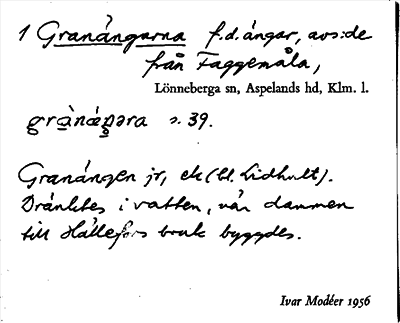 1 Granängarna f.d. ängar, avs:de
från Faggemåla,
Lönneberga sn, Aspelands hd, Klm. l.
s. 39.
Granängen jr, ek (bl. Lidhult).
Dränktes i vatten, när dammen
till Hällefors bruk byggdes.
Ivar Modéer 1956